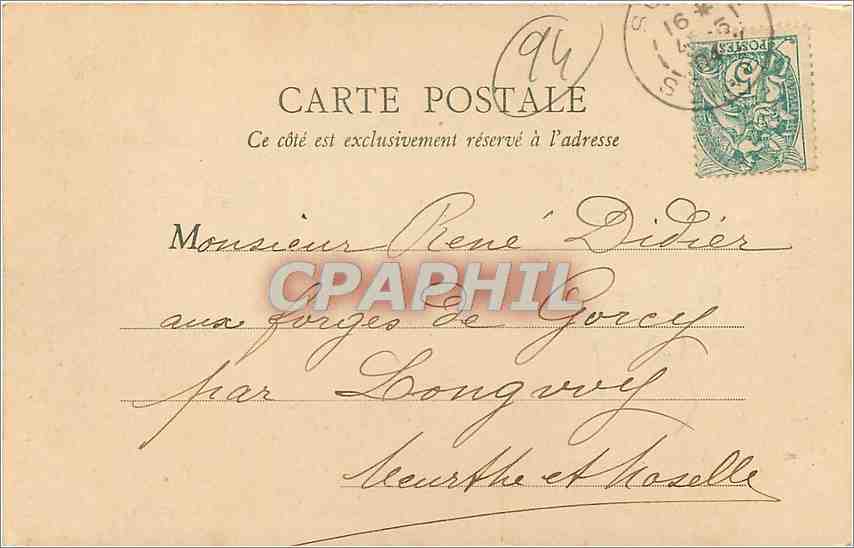 94
CARTE POSTALE
Ce côté est exclusivement réservé à l'adresse
16 *
POSTES
5
Monsieur René Didier
CPAPHIL
aux forges de Gorcy
par Longwy
Meurthe et Moselle